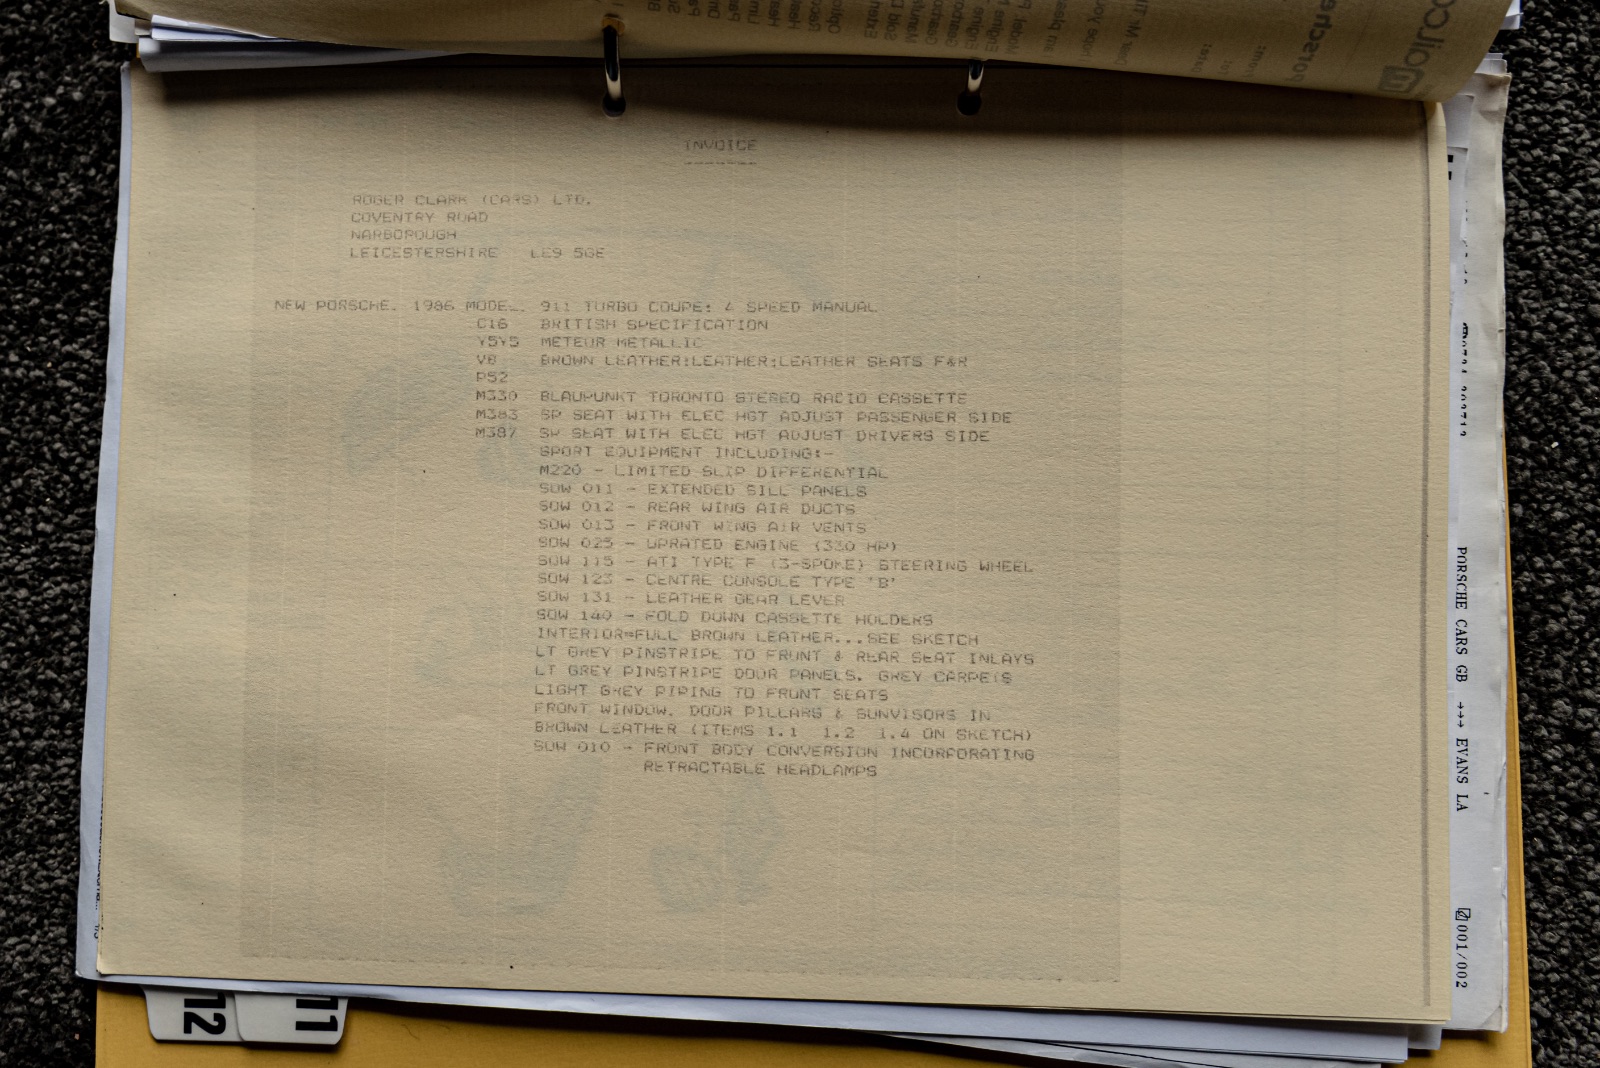 INVOICE
ROGER CLARK (CARS) LTD.
COVENTRY ROAD
NARBOROUGH
LEICESTERSHIRE LE9 5GE
NEW PORSCHE. 1986 MODEL. 911 TURBO COUPE: 4 SPEED MANUAL
C16 BRITISH SPECIFICATION
Y5Y5 METEUR METALLIC
V8 BROWN LEATHER:LEATHER:LEATHER SEATS F&R
P52
M330 BLAUPUNKT TORONTO STEREO RADIO CASSETTE
M383 SP SEAT WITH ELEC HGT ADJUST PASSENGER SIDE
M387 SP SEAT WITH ELEC HGT ADJUST DRIVERS SIDE
SPORT EQUIPMENT INCLUDING:-
M220 - LIMITED SLIP DIFFERENTIAL
SOW 011 - EXTENDED SILL PANELS
SOW 012 - REAR WING AIR DUCTS
SOW 013 - FRONT WING AIR VENTS
SOW 025 - UPRATED ENGINE (330 HP)
SOW 115 - ATI TYPE F (3-SPOKE) STEERING WHEEL
SOW 123 - CENTRE CONSOLE TYPE 'B'
SOW 131 - LEATHER GEAR LEVER
SOW 140 - FOLD DOWN CASSETTE HOLDERS
INTERIOR=FULL BROWN LEATHER...SEE SKETCH
LT GREY PINSTRIPE TO FRONT & REAR SEAT INLAYS
LT GREY PINSTRIPE DOOR PANELS. GREY CARPETS
LIGHT GREY PIPING TO FRONT SEATS
FRONT WINDOW. DOOR PILLARS & SUNVISORS IN
BROWN LEATHER (ITEMS 1.1 1.2 1.4 ON SKETCH)
SOW 010 - FRONT BODY CONVERSION INCORPORATING
RETRACTABLE HEADLAMPS
PORSCHE CARS GB →→→ EVANS LA
001/002
12
11